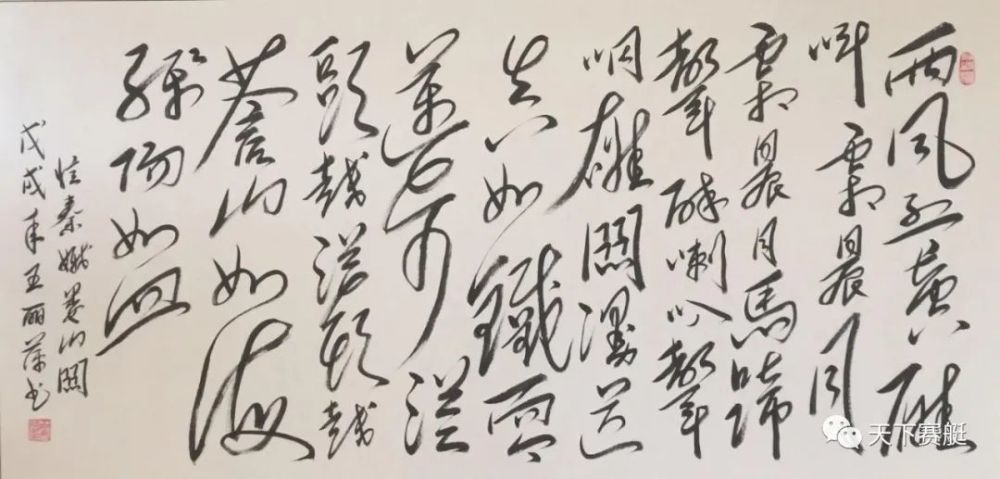 西風烈長空雁
叫霜晨月
霜晨月馬蹄
聲碎喇叭聲
咽雄關漫道
真如鐵而今
邁步從
頭越從頭越
蒼山如海
殘陽如血
憶秦娥婁山關
戊戌年王丽萍书
天下赛艇